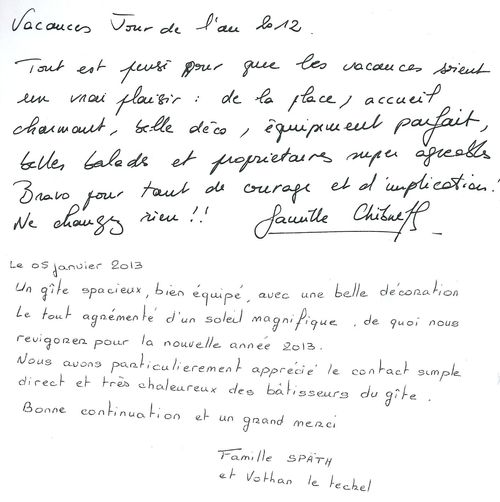 Vacances Jour de l'an 2012.
Tout est pensé pour que les vacances soient
un vrai plaisir : de la place, accueil
charmant, belle déco, équipement parfait,
belles balades et propriétaires super agréables
Bravo pour tant de courage et d'implication !
Ne changez rien !! Famille
Le 05 janvier 2013
Un gîte spacieux, bien équipé, avec une belle décoration
Le tout agrémenté d'un soleil magnifique, de quoi nous
revigorer pour la nouvelle année 2013.
Nous avons particulièrement apprécié le contact simple
direct et très chaleureux des bâtisseurs du gîte.
Bonne continuation et un grand merci
Famille SPÄTH
et Vothan le teckel